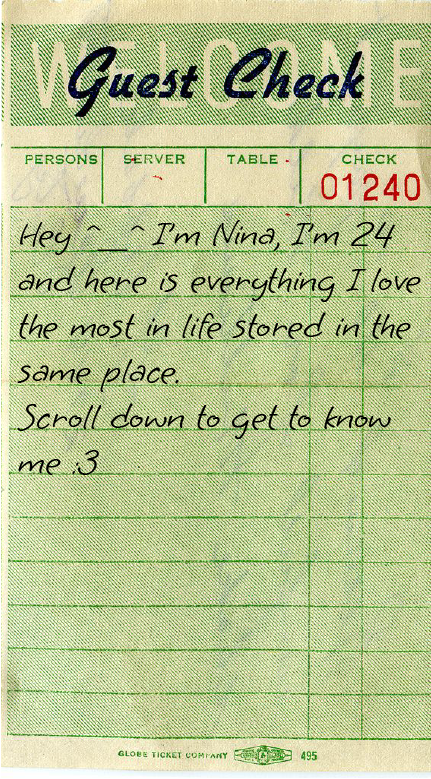 WELCOME
Guest Check
PERSONS SERVER TABLE CHECK
01240
Hey ^__^ I'm Nina, I'm 24
and here is everything I love
the most in life stored in the
same place.
Scroll down to get to know
me :3
GLOBE TICKET COMPANY 495